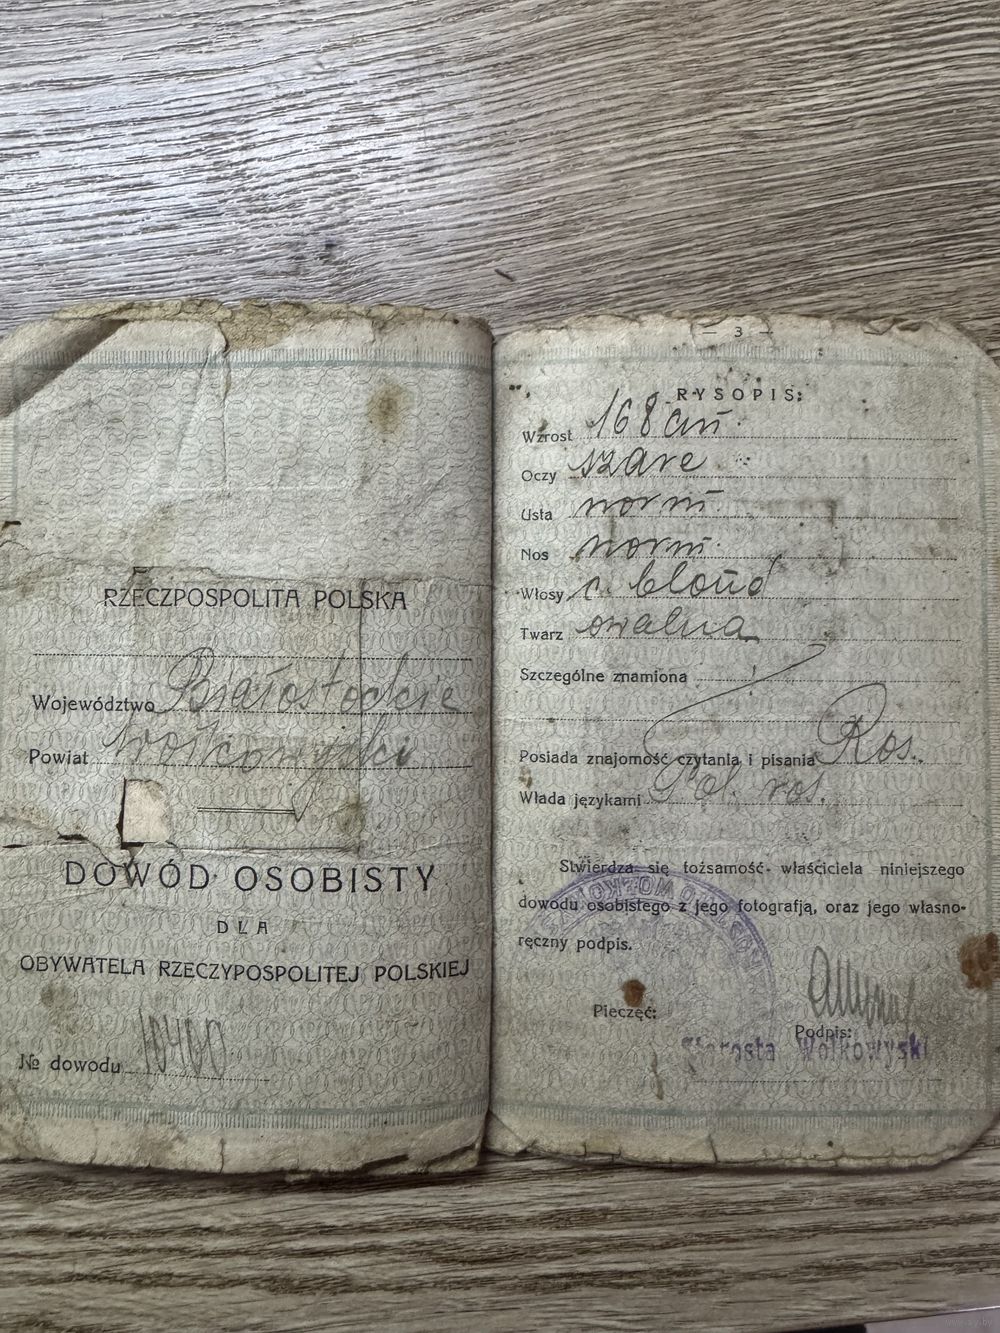 RZECZPOSPOLITA POLSKA
Województwo Białostockie
Powiat Wołkowyski
DOWÓD OSOBISTY
DLA
OBYWATELA RZECZYPOSPOLITEJ POLSKIEJ
№ dowodu 10400
— 3 —
RYSOPIS:
Wzrost 168 cm.
Oczy szare
Usta norm.
Nos norm.
Włosy c. blond
Twarz owalna
Szczególne znamiona
Posiada znajomość czytania i pisania Ros.
Włada językami Pol. ros.
Stwierdza się tożsamość właściciela niniejszego
dowodu osobistego z jego fotografją, oraz jego własno-
ręczny podpis.
Pieczęć:
Podpis:
Starosta Wołkowyski